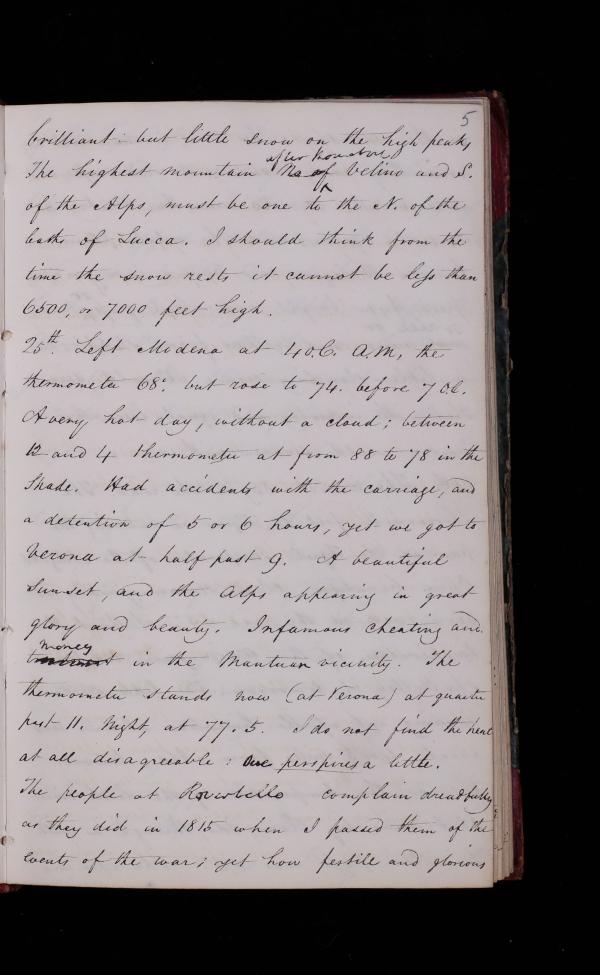 5
brilliant: but little snow on the high peaks,
The highest mountain of Velino and S.
of the Alps, must be one to the N. of the
baths of Lucca. I should think from the
time the snow rests it cannot be less than
6500, or 7000 feet high.
25th. Left Modena at 4 o.C. A.M, the
thermometer 68°. but rose to 74. before 7 o.C.
A very hot day, without a cloud; between
12 and 4 thermometer at from 88 to 78 in the
Shade. Had accidents with the carriage, and
a detention of 5 or 6 hours, yet we got to
Verona at half past 9. A beautiful
Sun-set, and the Alps appearing in great
glory and beauty. Infamous cheating and
money
in the Mantuan vicinity. The
thermometer stands now (at Verona) at quarter
past 11. Night, at 77.5. I do not find the heat
at all disagreeable: One perspires a little.
The people at complain dreadfully
as they did in 1815 when I passed them of the
events of the war; yet how fertile and glorious